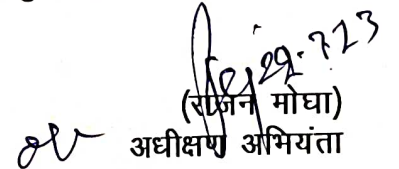 29.7.23
(राजन मोघा)
अधीक्षण अभियंता